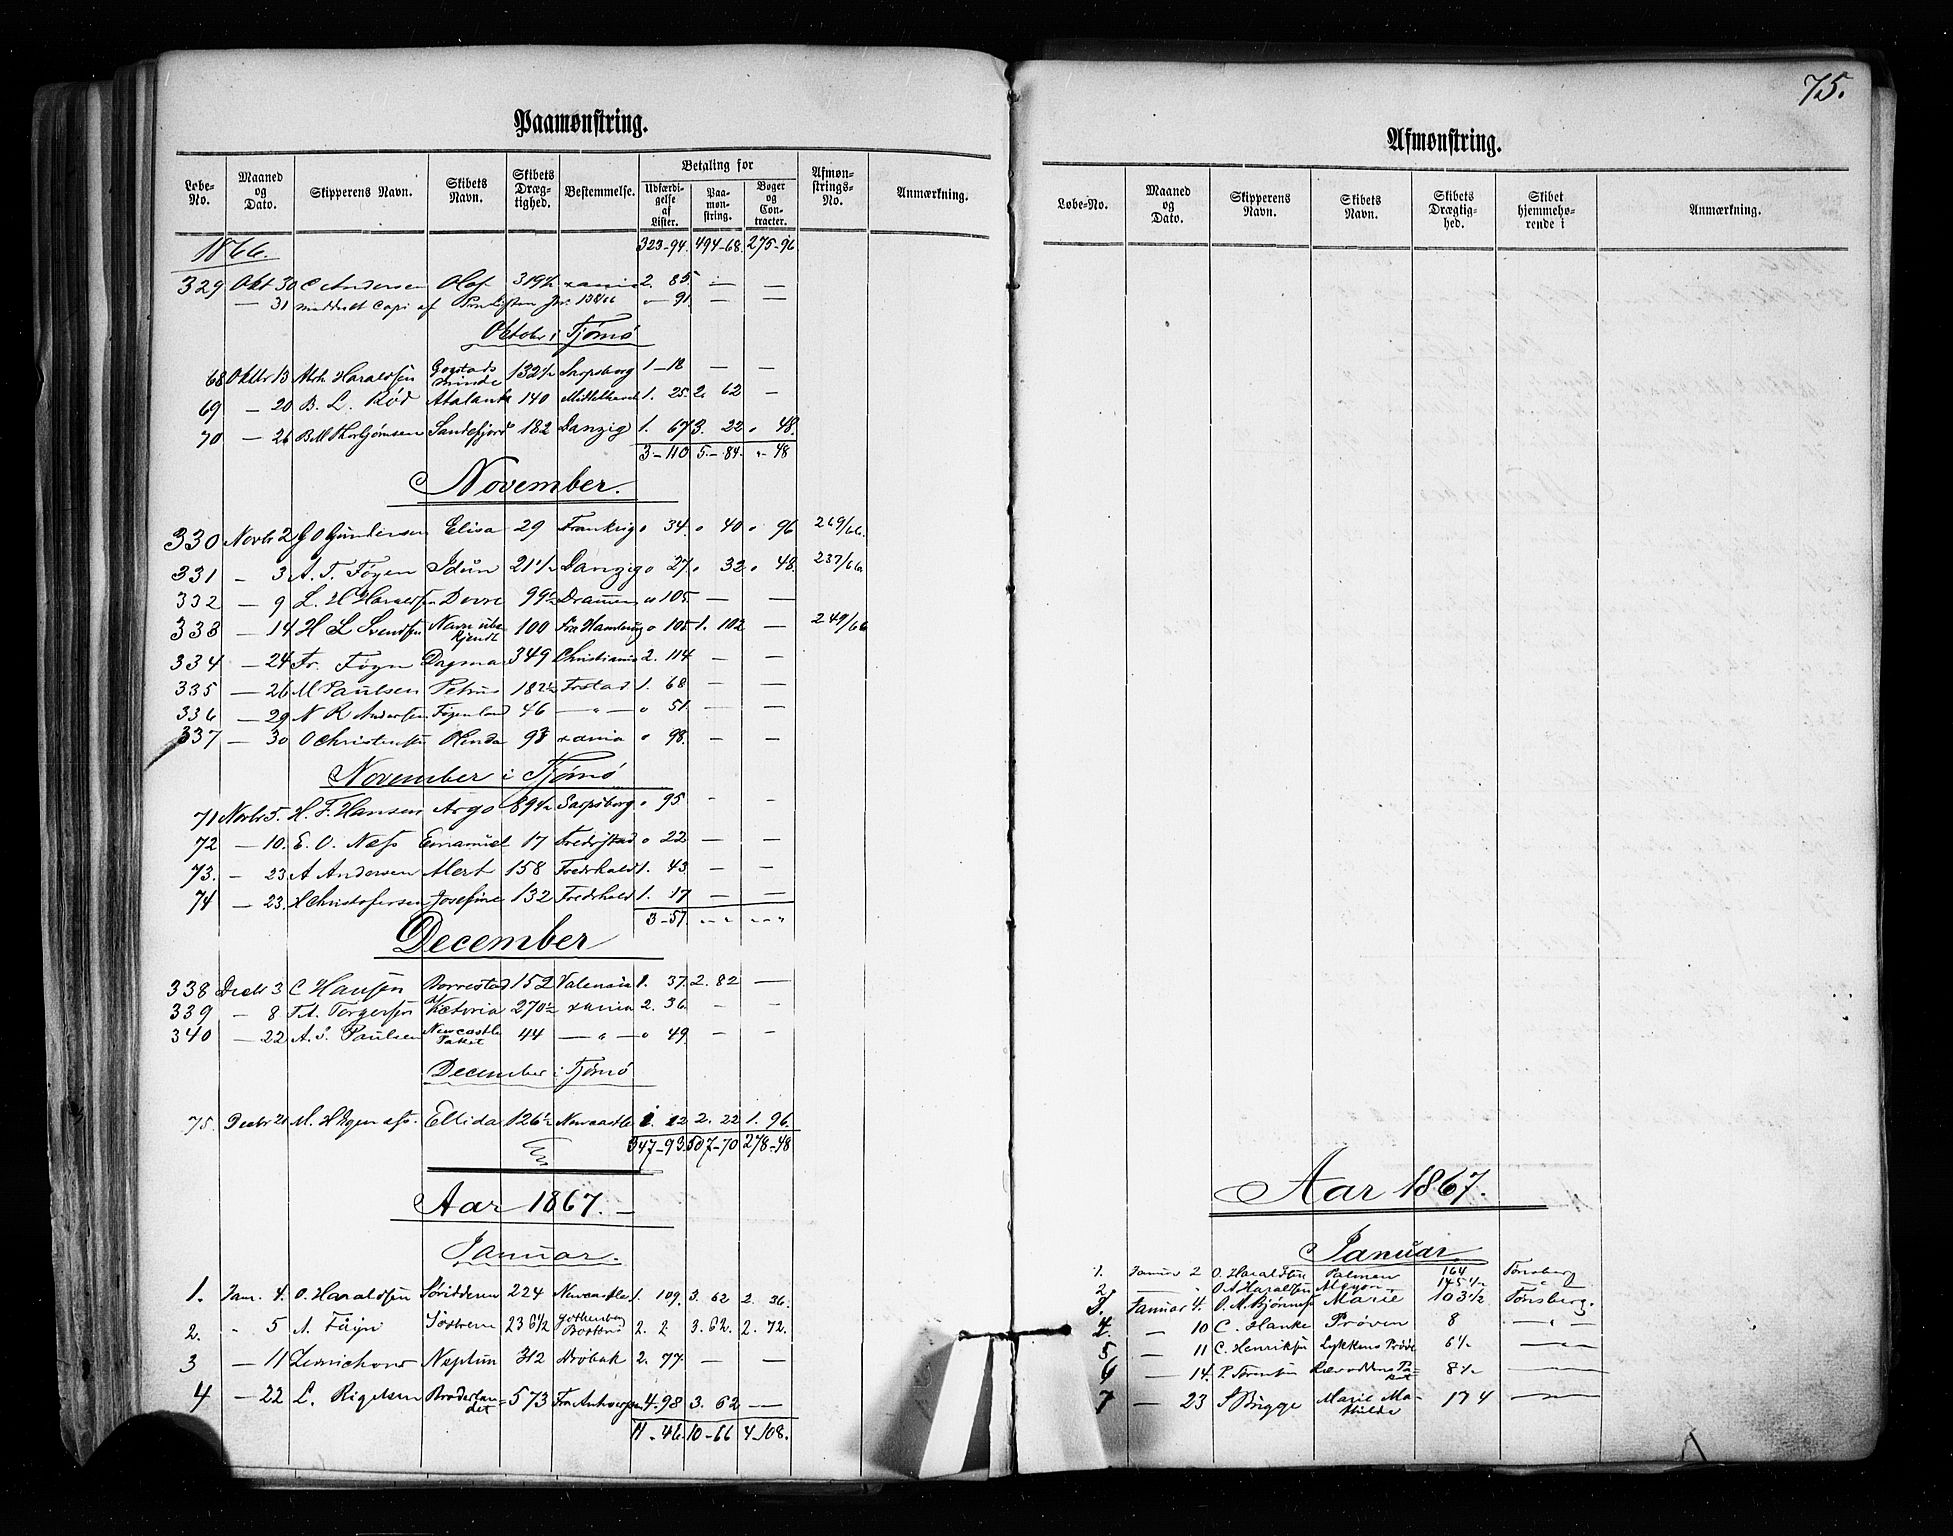 75.
Paamønstring.
Løbe-No. Maaned og Dato. Skipperens Navn. Skibets Navn. Skibets Drægtighed. Bestemmelse. Betaling for Udfærdigelse af Lister. Paamønstring. Bøger og Contracter. Afmønstrings-No. Anmærkning.
1866. 323-94. 494-68. 275-96
329 Okt 30 C Andersen Olaf 319½ xania 2. 85. — —
— 31 meddelt Copi af " 91. — —
Oktober i Tjømø
68 Oktbr 13 Mrk Haraldsen Gogstads minde 132½ Sarpsborg 1-18 — —
69 — 20 B. L. Rød Atalanta 140 Middelhavet 1. 25. 2. 62 —
70 — 26 Thorbjørnsen Sandefjord 182 Danzig 1. 67 3. 22 " 48.
3-110 5-84. "-48
November.
330 Novbr 2 J O Gundersen Elisa 29 Frankrig " 34. " 40 " 96 269/66.
331 — 3 A. T. Føyen Idun 21½ Danzig " 27. " 32 " 48. 237/66.
332 — 9 L. H Haraldsen Dovre 99½ Drammen " 105. — —
333 — 14 H L Svendsen Navn ubekjendt 100 Fra Hamburg " 105 1. 102 — 249/66
334 — 24 Fr. Føyn Dagmar 349 Christiania 2. 114 — —
335 — 26 M Paulsen Petrus 182½ Frstad 1. 68 — —
336 — 29 N R Andersen Føyenland 46 — " — " 51. — —
337 — 30 O Christensen Olenda 98 xania " 98. — —
November i Tjømø
71 Novbr 5. H. F. Hansen Argo 89½ Sarpsborg " 95 — —
72 — 10. E. O. Næss Emanuel 17 Fredrstad " 22 — —
73. — 23. A Andersen Alert 158 Fredrhald 1. 43. — —
74 — 23. H Christofersen Josefine 132 Fredrhald 1. 17 — —
3-57. "-" "-"
December
338 Decbr 3 C Hansen Borrestad 152 Valencia 1. 37. 2. 82 —
339 — 8 T. A. Torgersen Victoria 270½ xania 2. 36. — —
340 — 22 A. S. Paulsen Newcastle Paket 44 — " — " 49. — —
December i Tjømø
75. Decbr 21 M. Ellida 126½ Newcastle 1. 22 2. 22 1. 96.
347-93. 507-70 278-48
Aar 1867.
Januar.
1. Jan. 4. O. Haraldsen Søridderen 224 Newcastle 1. 109. 3. 62 2. 36.
2. " 5 A. Føyn Søstrene 236½ Gothenborg 2. 2 3. 62. 2. 72.
3 — 11 Neptun 312 Drøbak 2. 77. — —
4 — 22 L. Rigelsen Broderlandet 573 Fra Antwerpen 4. 98 3. 62 —
11-46. 10-66 4-108.
Afmønstring.
Løbe-No. Maaned og Dato. Skipperens Navn. Skibets Navn. Skibets Drægtighed. Skibet hjemmehørende i Anmærkning.
Aar 1867.
Januar
1. Januar 2 O. Haraldsen Palmen 164 Tønsberg
2. — " O A Haraldsen 145½ "
3. Januar 4. O. M. Bjønnes Marie 103½ Tønsberg.
4. — 10 C. Hanke Prøven 8 — " —
5 — 11 C. Henriksen Lykkens Prøve 6½ — " —
6 — 14. P. Sørensen Paket 8½ — " —
7 — 23 S Brygge Marie Mathilde 174 — " —